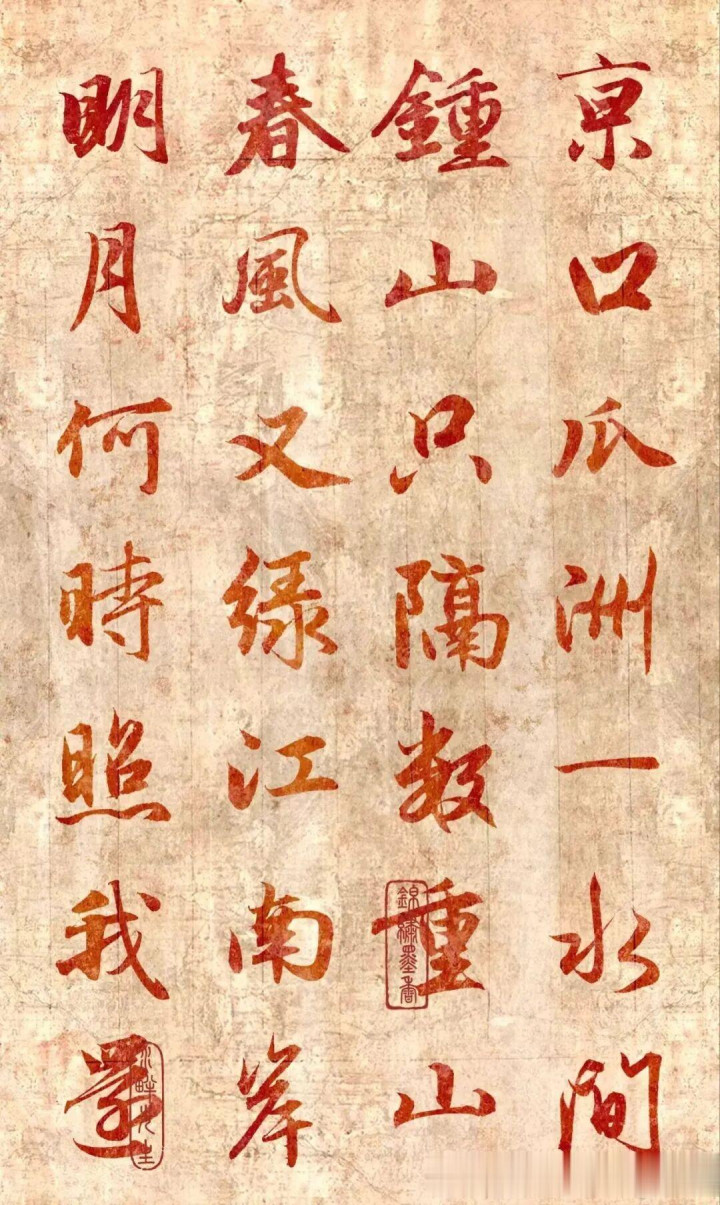 京口瓜洲一水間
鍾山只隔数重山
春風又緑江南岸
明月何時照我還
錦繡墨香